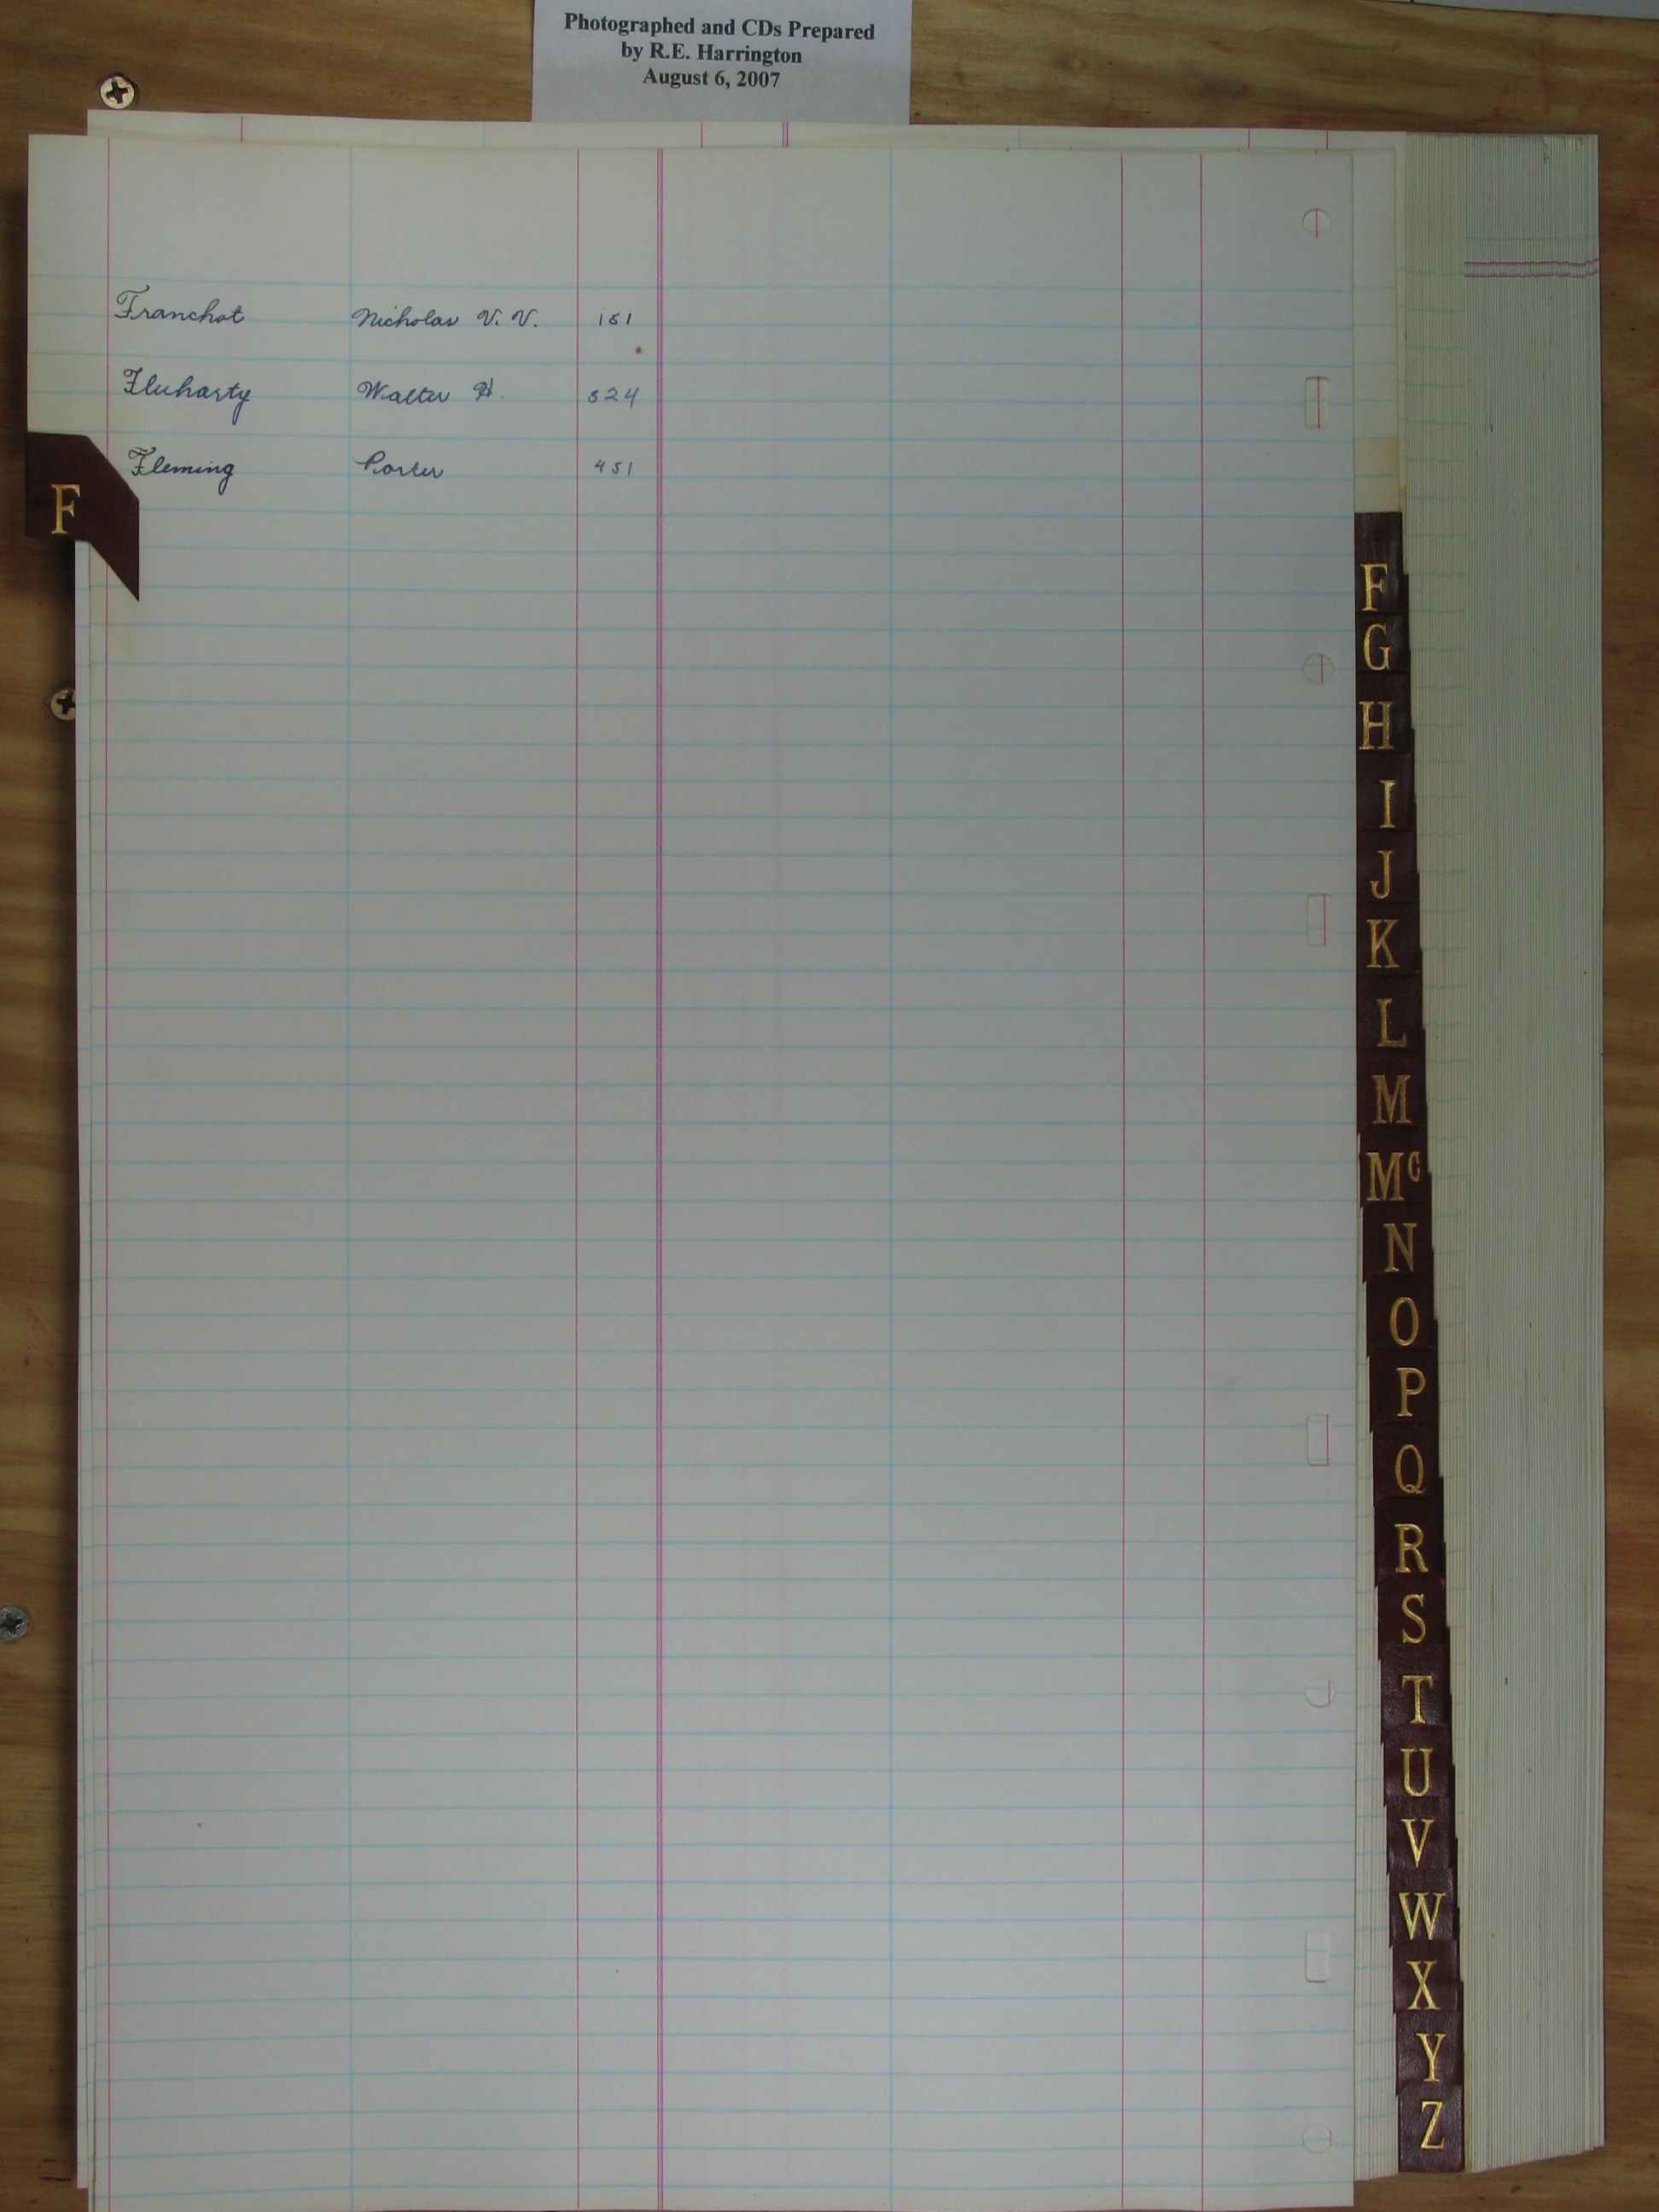 Photographed and CDs Prepared
by R.E. Harrington
August 6, 2007
Franchot Nicholas V. V. 151
Fluharty Walter H. 324
Fleming Porter 451
F
F
G
H
I
J
K
L
M
Mc
N
O
P
Q
R
S
T
U
V
W
X
Y
Z